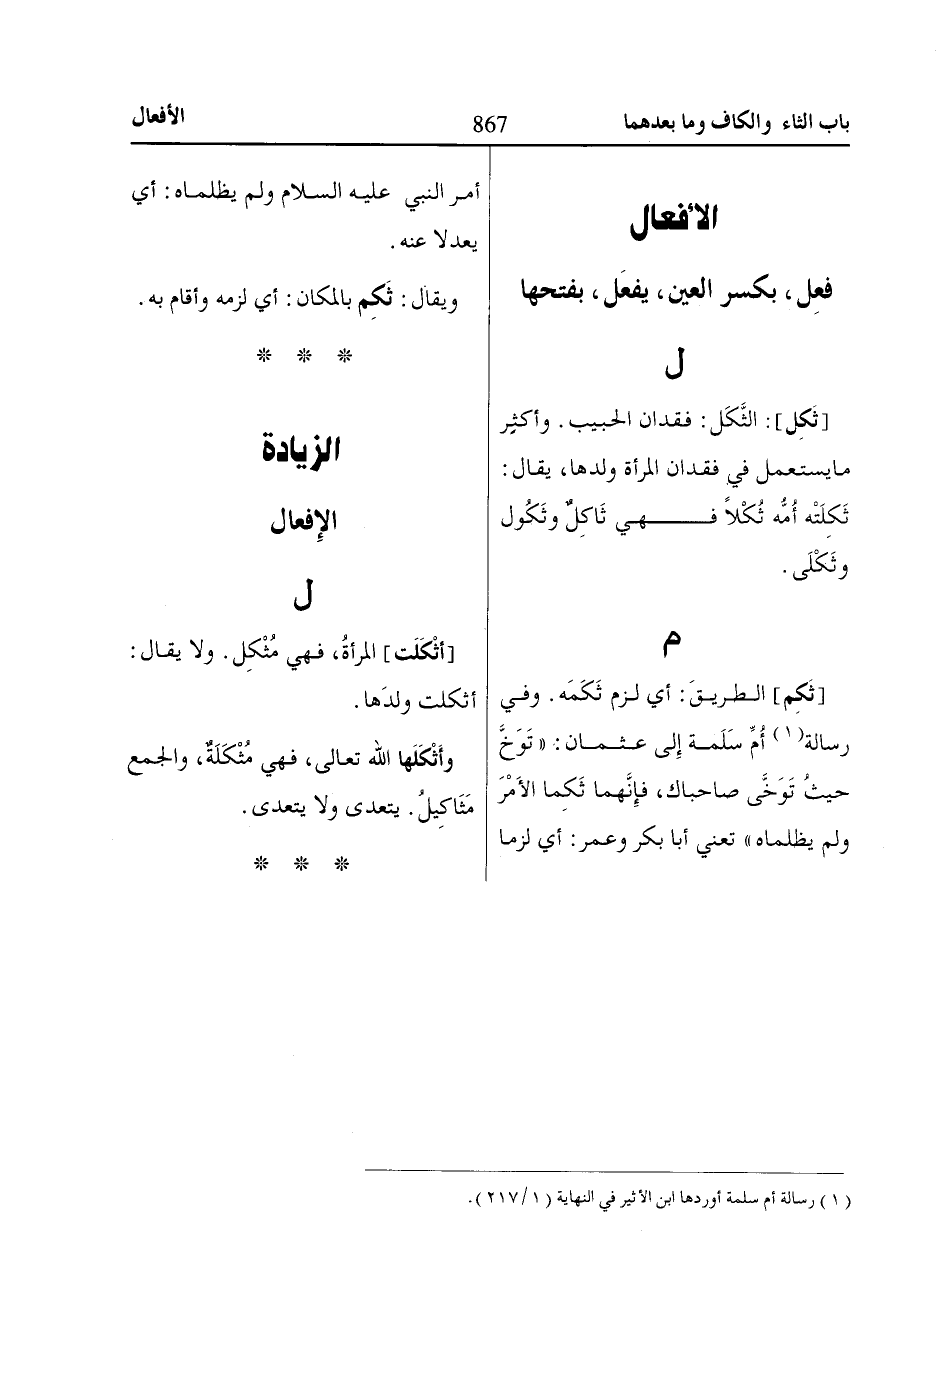 باب الثاء والكاف وما بعدهما
867
الأفعال
الأفعال
فعِل، بكسر العين، يفعَل، بفتحها
ل
[ثَكِل]: الثَّكَل: فقدان الحبيب. وأكثر
مايستعمل في فقدان المرأة ولدها، يقال:
ثَكِلَتْه أُمُّه ثُكْلاً فهي ثَاكِلٌ وثَكُول
وثَكْلَى.
م
[ثَكِم] الطريقَ: أي لزم ثَكَمَه. وفي
رسالة(١) أُمِّ سَلَمة إلى عثمان: «تَوَخَّ
حيثُ تَوَخَّى صاحباك، فإنَّهما ثَكِما الأمْرَ
ولم يظلماه» تعني أبا بكر وعمر: أي لزما
أمر النبي عليه السلام ولم يظلماه: أي
يعدلا عنه.
ويقال: ثَكِم بالمكان: أي لزمه وأقام به.
* * *
الزيادة
الإفعال
ل
[أثْكَلَت] المرأةُ، فهي مُثْكِل. ولا يقال:
أثكلت ولدَها.
وأَثْكَلَها الله تعالى، فهي مُثْكَلَةٌ، والجمع
مَثَاكِيلُ. يتعدى ولا يتعدى.
* * *
(١) رسالة أم سلمة أوردها ابن الأثير في النهاية (١/٢١٧).